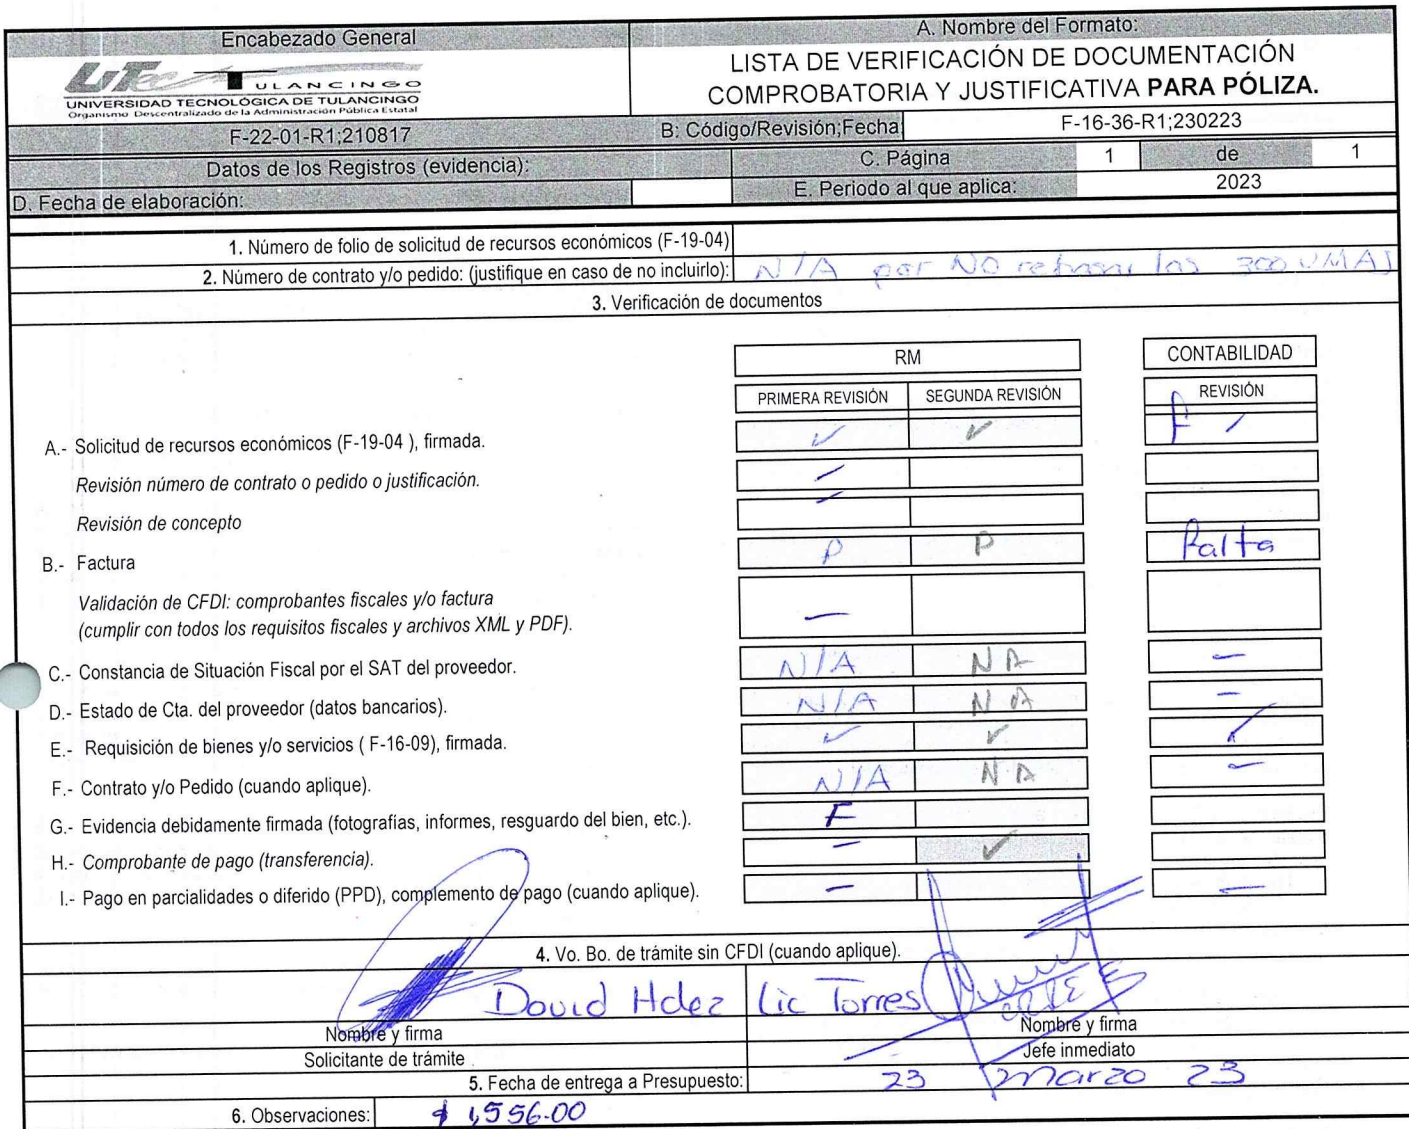 Encabezado General
A. Nombre del Formato:
UTec TULANCINGO
UNIVERSIDAD TECNOLÓGICA DE TULANCINGO
Organismo Descentralizado de la Administración Pública Estatal
LISTA DE VERIFICACIÓN DE DOCUMENTACIÓN
COMPROBATORIA Y JUSTIFICATIVA PARA PÓLIZA.
F-22-01-R1;210817
B: Código/Revisión;Fecha
F-16-36-R1;230223
Datos de los Registros (evidencia):
C. Página 1 de 1
D. Fecha de elaboración:
E. Periodo al que aplica: 2023
1. Número de folio de solicitud de recursos económicos (F-19-04)
2. Número de contrato y/o pedido: (justifique en caso de no incluirlo): N/A por NO las 300 UMAS
3. Verificación de documentos
RM CONTABILIDAD
PRIMERA REVISIÓN SEGUNDA REVISIÓN REVISIÓN
A.- Solicitud de recursos económicos (F-19-04 ), firmada. ✓ ✓
Revisión número de contrato o pedido o justificación.
Revisión de concepto
B.- Factura P P Falta
Validación de CFDI: comprobantes fiscales y/o factura
(cumplir con todos los requisitos fiscales y archivos XML y PDF). –
C.- Constancia de Situación Fiscal por el SAT del proveedor. N/A NA –
D.- Estado de Cta. del proveedor (datos bancarios). N/A NA –
E.- Requisición de bienes y/o servicios ( F-16-09), firmada. ✓ ✓ ✓
F.- Contrato y/o Pedido (cuando aplique). N/A NA –
G.- Evidencia debidamente firmada (fotografías, informes, resguardo del bien, etc.). F
H.- Comprobante de pago (transferencia). – ✓
I.- Pago en parcialidades o diferido (PPD), complemento de pago (cuando aplique). – –
4. Vo. Bo. de trámite sin CFDI (cuando aplique).
David Hdez Lic Torres
Nombre y firma Nombre y firma
Solicitante de trámite Jefe inmediato
5. Fecha de entrega a Presupuesto: 23 marzo 23
6. Observaciones: $ 1,556.00